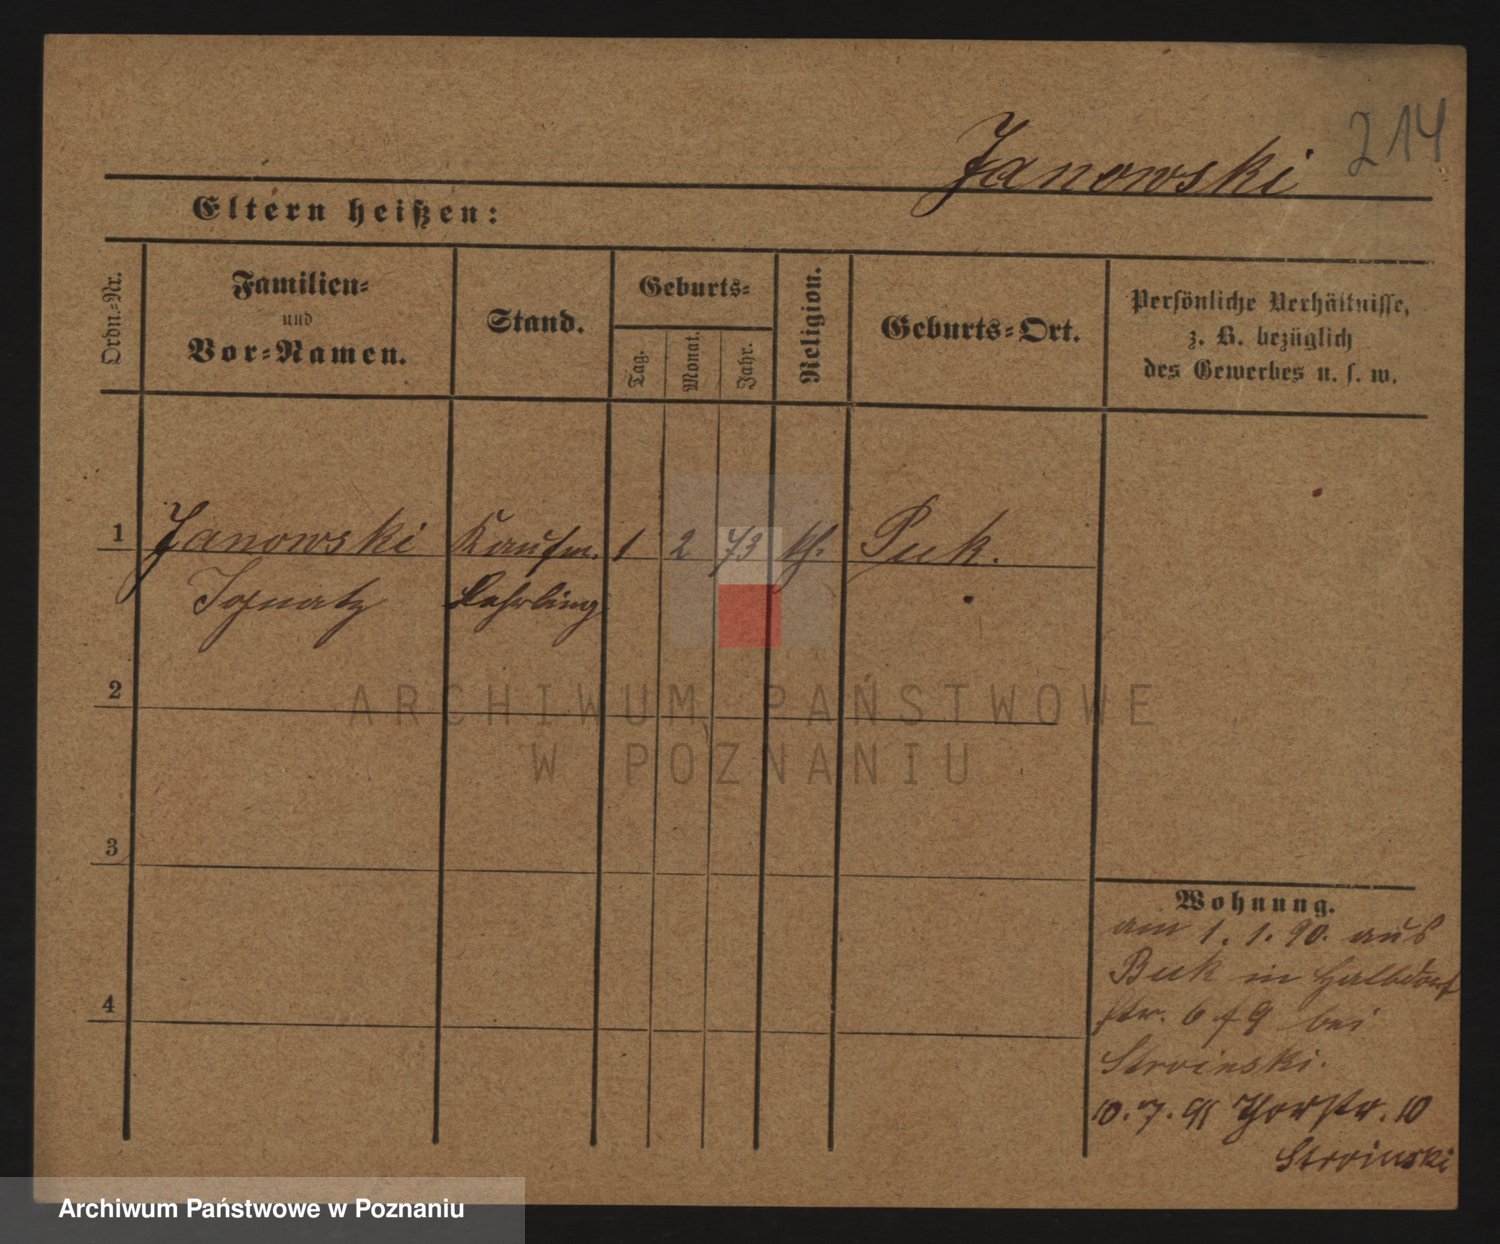 214
Janowski
Eltern heißen:
Ordn.-Nr.
Familien-
und
Vor-Namen.
Stand.
Geburts-
Tag.
Monat.
Jahr.
Religion.
Geburts-Ort.
Persönliche Verhältnisse,
z. B. bezüglich
des Gewerbes u. s. w.
1 Janowski Kaufm. 1 2 73 kth. Puk.
Ignatz Lehrling
2
3
4
ARCHIWUM PAŃSTWOWE
W POZNANIU
Wohnung.
am 1. 1. 90. aus
Buk in Halbdorf
str. 6 f 9 bei
Stroinski.
10. 7. 91 Thorstr. 10
Stroinski
Archiwum Państwowe w Poznaniu